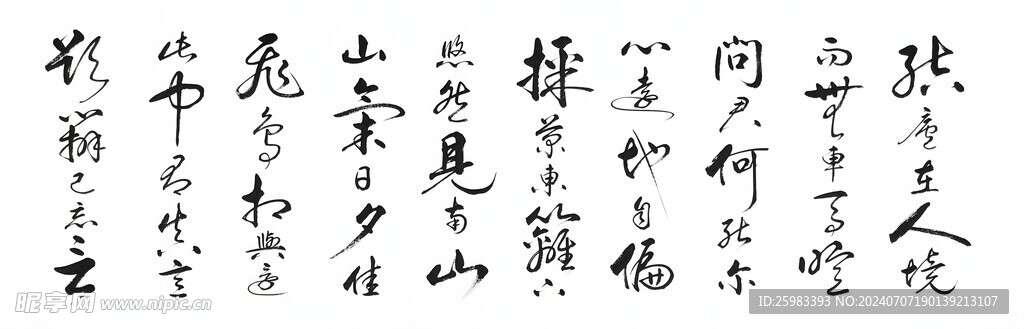 結廬在人境
而無車馬喧
問君何能尔
心遠地自偏
採菊東籬下
悠然見南山
山氣日夕佳
飛鳥相與還
此中有真意
欲辨已忘言
昵享网 www.nipic.cn
ID:25983393 NO:20240707190139213107